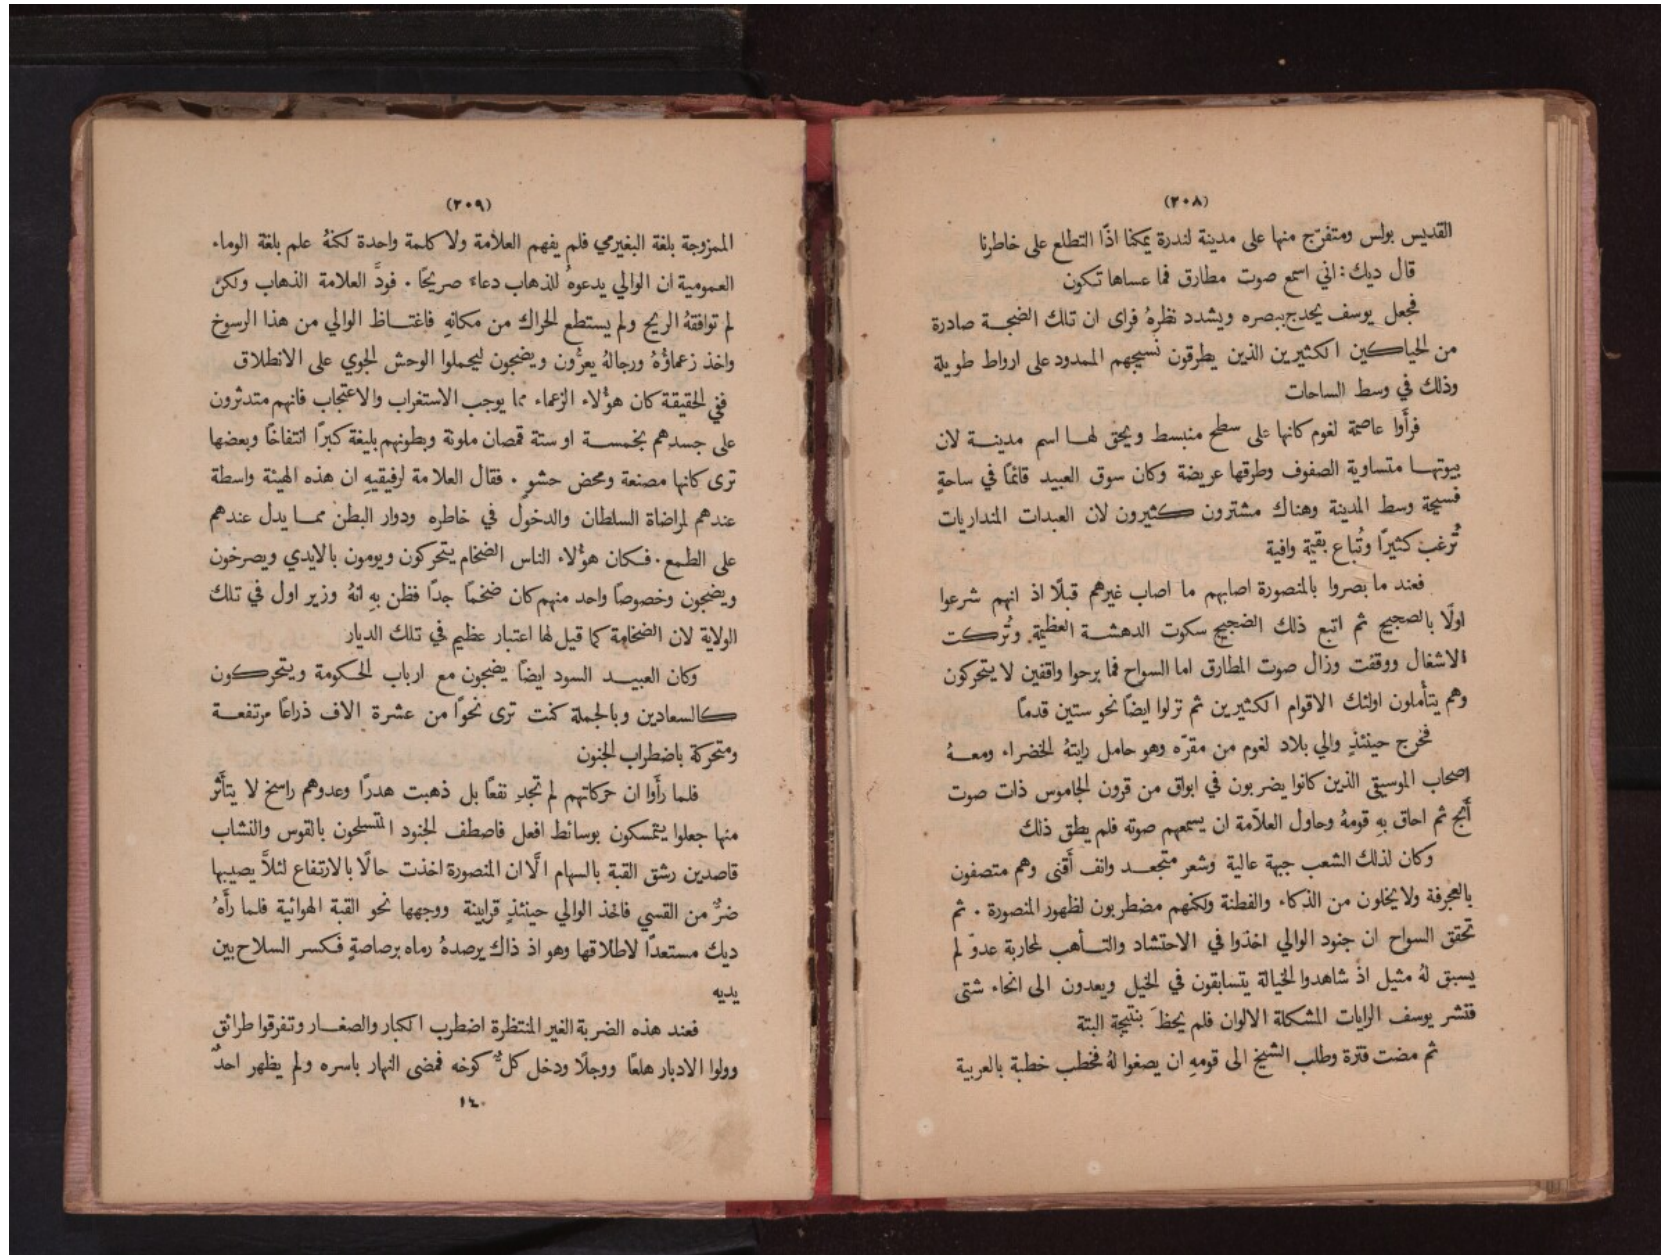 (٢٠٨)
القديس بولس ومتفرّج منها على مدينة لندرة يمكنا اذًا التطلع على خاطرنا
قال ديك: اني اسمع صوت مطارق فما عساها تكون
فجعل يوسف يحدج ببصره ويشدد نظرهُ فراى ان تلك الضجة صادرة
من الحياكين الكثيرين الذين يطرقون نسيجهم الممدود على ارواط طويلة
وذلك في وسط الساحات
فرأَوا عاصمة لغوم كانها على سطح منبسط ويحق لها اسم مدينة لان
بيوتها متساوية الصفوف وطرقها عريضة وكان سوق العبيد قائمًا في ساحةٍ
فسيحة وسط المدينة وهناك مشترون كثيرون لان العبدات المنداريات
تُرغب كثيرًا وتُباع بقيمة وافية
فعند ما بصروا بالمنصورة اصابهم ما اصاب غيرهم قبلًا اذ انهم شرعوا
اولًا بالصجيج ثم اتبع ذلك الضجيج سكوت الدهشة العظيمة. وتُركت
الاشغال ووقفت وزال صوت المطارق اما السواح فما برحوا واقفين لا يتحركون
وهم يتأَملون اولئك الاقوام الكثيرين ثم نزلوا ايضًا نحو ستين قدمًا
فخرج حينئذٍ والي بلاد لغوم من مقرّه وهو حامل رايتهُ الخضراء ومعهُ
اصحاب الموسيقى الذين كانوا يضربون في ابواق من قرون الجاموس ذات صوت
أَبج ثم احاق بهِ قومهُ وحاول العلاّمة ان يسمعهم صوته فلم يطق ذلك
وكان لذلك الشعب جبهة عالية وشعر متجعد وانف أَقنى وهم متصفون
بالعجرفة ولا يخلون من الذكاء والفطنة ولكنهم مضطربون لظهور المنصورة . ثم
تحقق السواح ان جنود الوالي اخذوا في الاحتشاد والتأهب لمحاربة عدوّ لم
يسبق لهُ مثيل اذ شاهدوا الخيالة يتسابقون في الخيل ويعدون الى انحاء شتى
فنشر يوسف الرايات المشكلة الالوان فلم يحظَ بنتيجة البتة
ثم مضت فترة وطلب الشيخ الى قومهِ ان يصغوا لهُ فخطب خطبة بالعربية
(٢٠٩)
الممزوجة بلغة البغيرمي فلم يفهم العلاّمة ولا كلمة واحدة لكنهُ علم بلغة الوماء
العمومية ان الوالي يدعوهُ للذهاب دعاءً صريحًا . فودَّ العلامة الذهاب ولكن
لم توافقهُ الريح ولم يستطع الحراك من مكانهِ فاغتاظ الوالي من هذا الرسوخ
واخذ زعماؤُهُ ورجالهُ يعرُّون ويضجون ليحملوا الوحش الجوي على الانطلاق
ففي الحقيقة كان هوُلاء الزعماء مما يوجب الاستغراب والاعتجاب فانهم متدثرون
على جسدهم بخمسة او ستة قمصان ملونة وبطونهم بليغة كبرًا انتفاخًا وبعضها
ترى كانها مصنعة ومحض حشوٍ . فقال العلامة لرفيقيهِ ان هذه الهيئة واسطة
عندهم لمراضاة السلطان والدخول في خاطره ودوار البطن مما يدل عندهم
على الطمع . فكان هوُلاء الناس الضخام يتحركون ويومون بالايدي ويصرخون
ويضجون وخصوصًا واحد منهم كان ضخمًا جدًا فظن بهِ انهُ وزير اول في تلك
الولاية لان الضخامة كما قيل لها اعتبار عظيم في تلك الديار
وكان العبيد السود ايضًا يضجون مع ارباب الحكومة ويتحركون
كالسعادين وبالجملة كنت ترى نحوًا من عشرة الاف ذراعًا مرتفعة
ومتحركة باضطراب الجنون
فلما رأَوا ان حركاتهم لم تجدِ نفعًا بل ذهبت هدرًا وعدوهم راسخ لا يتأَثر
منها جعلوا يتمسكون بوسائط افعل فاصطف الجنود المتسلحون بالقوس والنشاب
قاصدين رشق القبة بالسهام الَّا ان المنصورة اخذت حالًا بالارتفاع لئلاَّ يصيبها
ضرٌّ من القسي فاتخذ الوالي حينئذٍ قرابينة ووجهها نحو القبة الهوائية فلما رأَهُ
ديك مستعدًا لاطلاقها وهو اذ ذاك يرصدهُ رماه برصاصةٍ فكسر السلاح بين
يديه
فعند هذه الضربة الغير المنتظرة اضطرب الكبار والصغار وتفرقوا طرائق
وولوا الادبار هلعًا ووجلًا ودخل كلٌّ كوخه فمضى النهار باسره ولم يظهر احدٌ
١٤